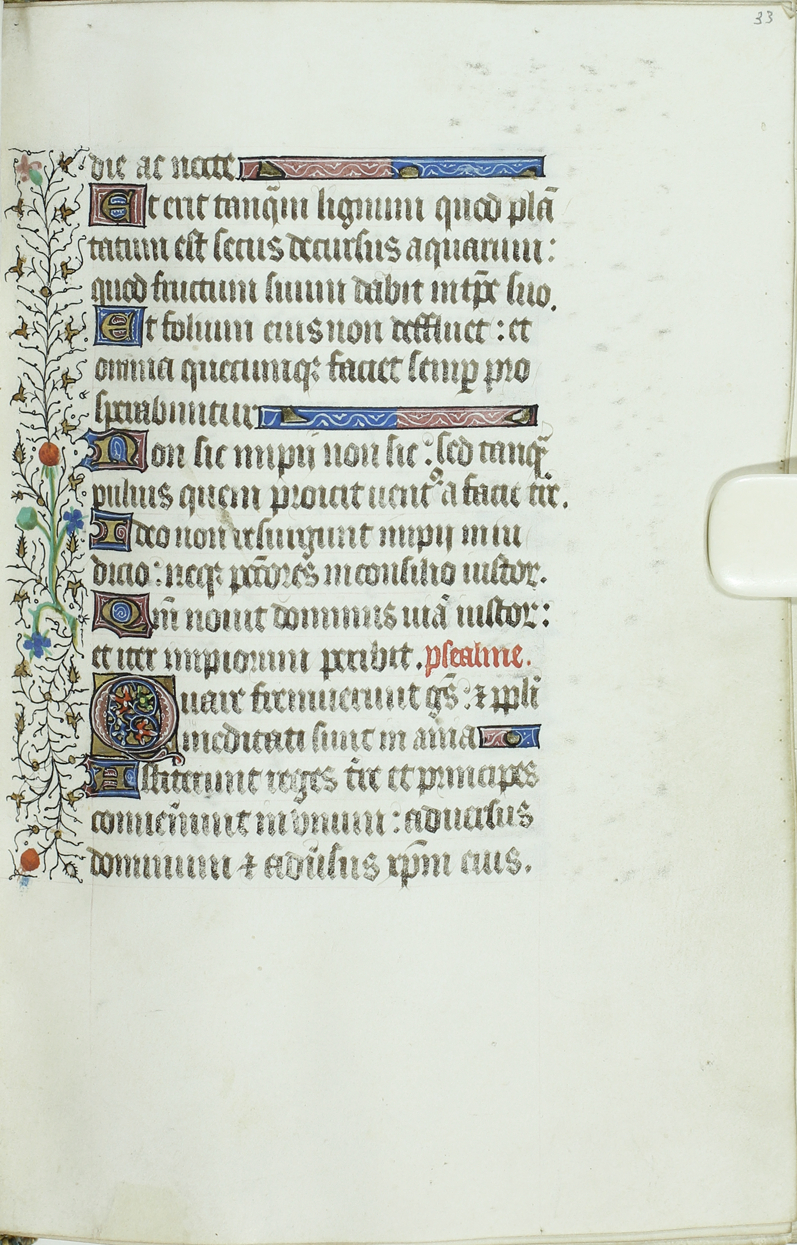 33
die ac nocte
Et erit tanq̄m lignum quod plā
tatum est secus decursus aquarum:
quod fructum suum dabit in tp̄e suo.
Et folium eius non deffluet : et
omnia quecumqꝫ faciet semꝑ pro
sperabuntur
Non sic impii non sic : sed tanqꝫ̄
puluis quem proicit uentꝰ a facie tr̄e.
Ideo non resurgunt impij in iu
dicio : neqꝫ pctōres in consilio iustoꝝ.
Qm̄ nouit dominus uiā iustoꝝ:
et iter impiorum peribit. psealme.
Quare fremuerunt gs̄ : ⁊ ppl̄i
meditati sunt in ania
Astiterunt reges tr̄e et principes
conuen̄unt in vnum : aduersus
dominum ⁊ adūsus xp̄m eius.